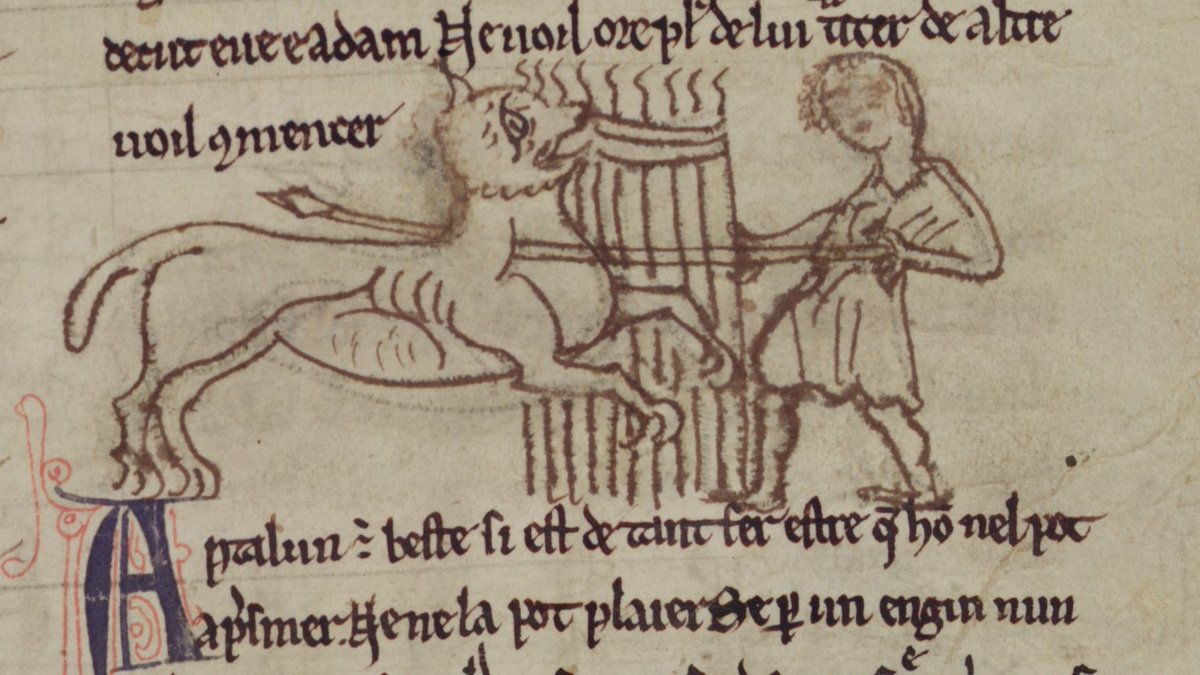 de cut eue e adam Ne uoil ore pl' de lui tͣiter de altre
uoil 9mencer
Aptalun ÷ beste si est de tant fer estre q̄ hō nel pot
ap's'mer. Ne ne la pot plaier Se ꝑ un engin nun